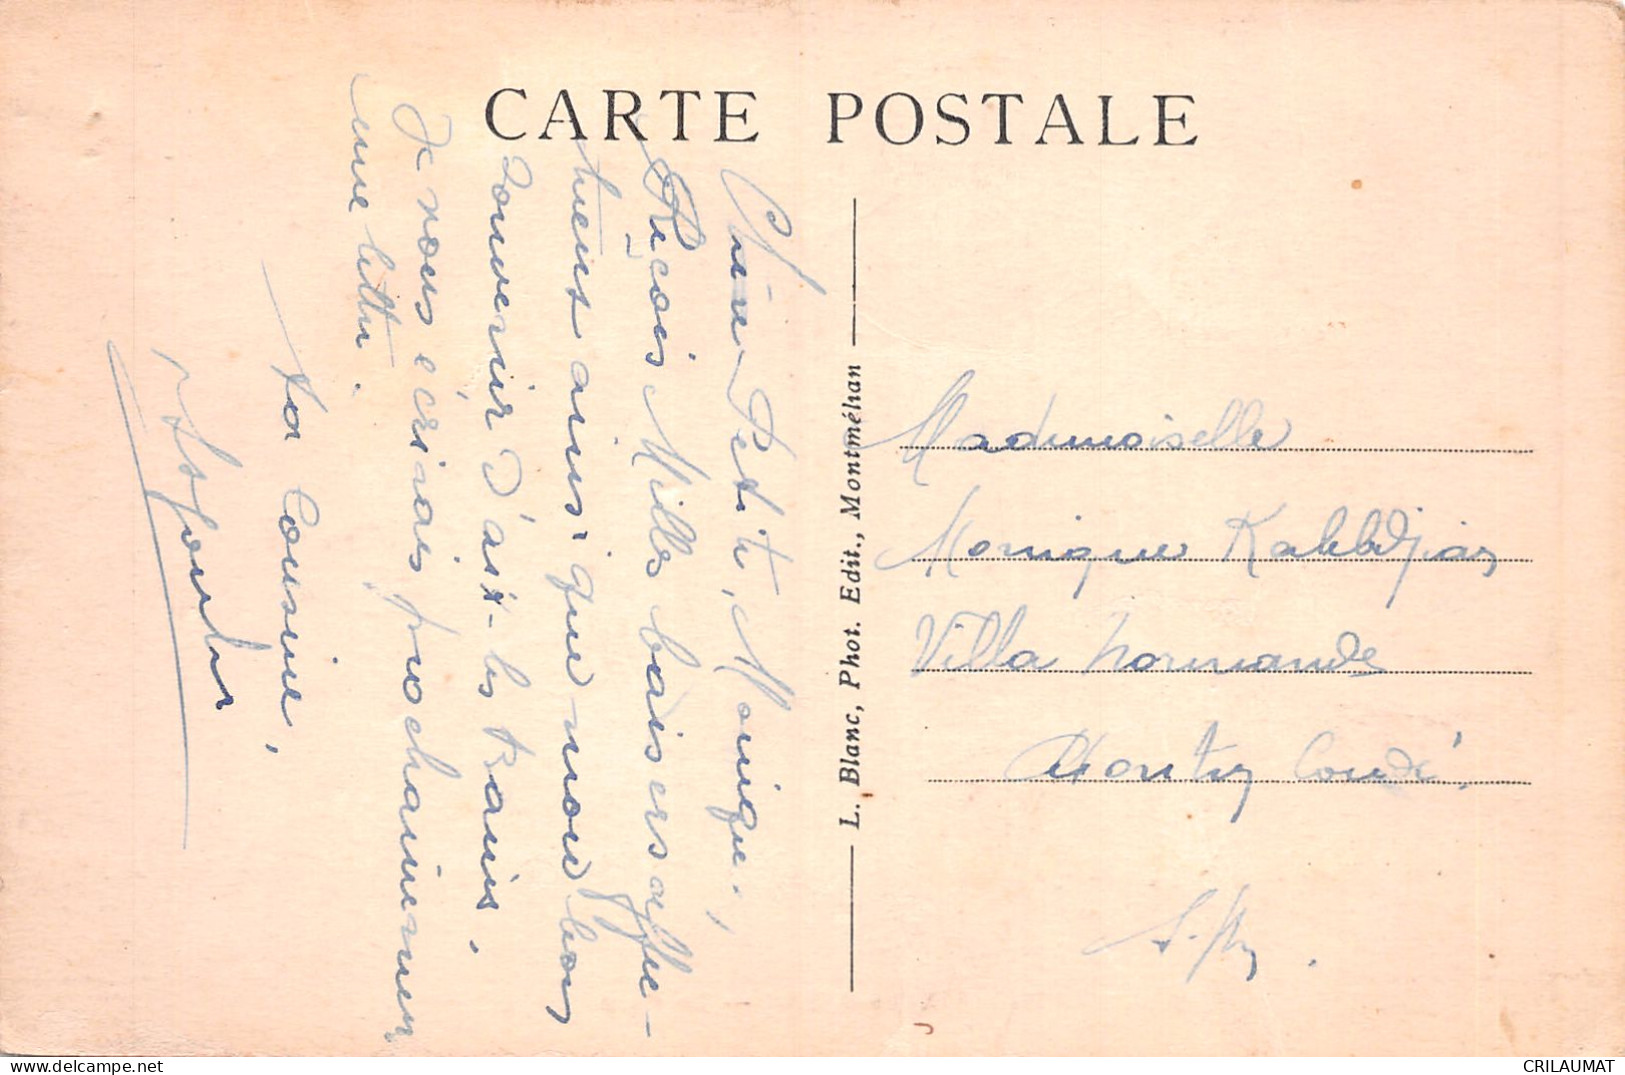 CARTE POSTALE
Chère Petite Monique,
Reçois Mille baisers affec-
tueux ainsi que mon bon
Souvenir d'aix-les Bains.
Je vous écrirais prochainement
une lettre.
ta Cousine,
L. Blanc, Phot. Edit., Montméhan
Mademoiselle
Monique
Villa Normande
Montry Condé
CRILAUMAT